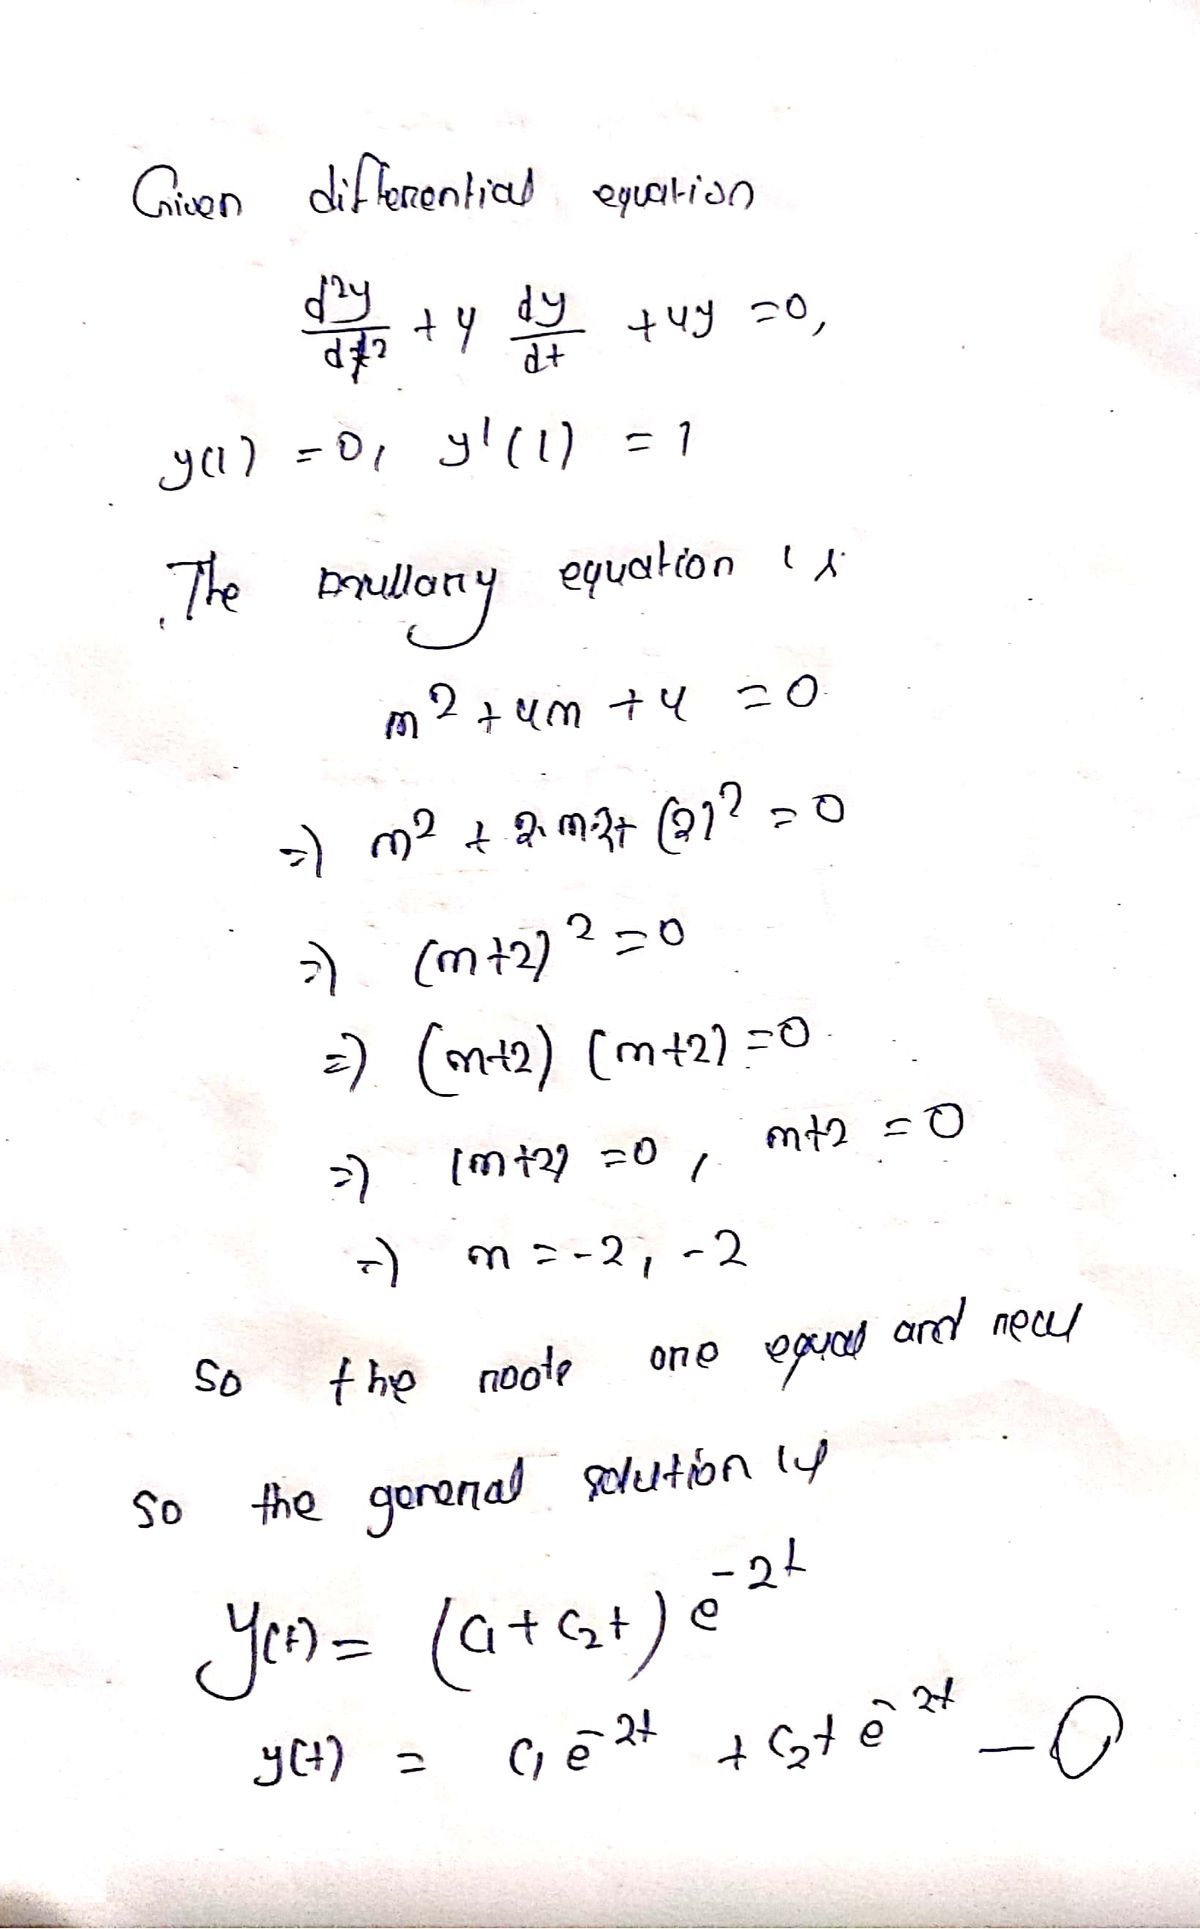 Given differential equation
d²y/dt² + 4 dy/dt + 4y = 0,
y(1) = 0, y'(1) = 1
The auxillary equation is
m² + 4m + 4 = 0
=) m² + 2.m.2+ (2)² = 0
=) (m+2)² = 0
=) (m+2) (m+2) = 0
=) (m+2) = 0, m+2 = 0
=) m = -2, -2
So the roots are equal and real
So the general solution is
y(t) = (c₁ + c₂t) e^-2t
y(t) = c₁ e^-2t + c₂t e^-2t —